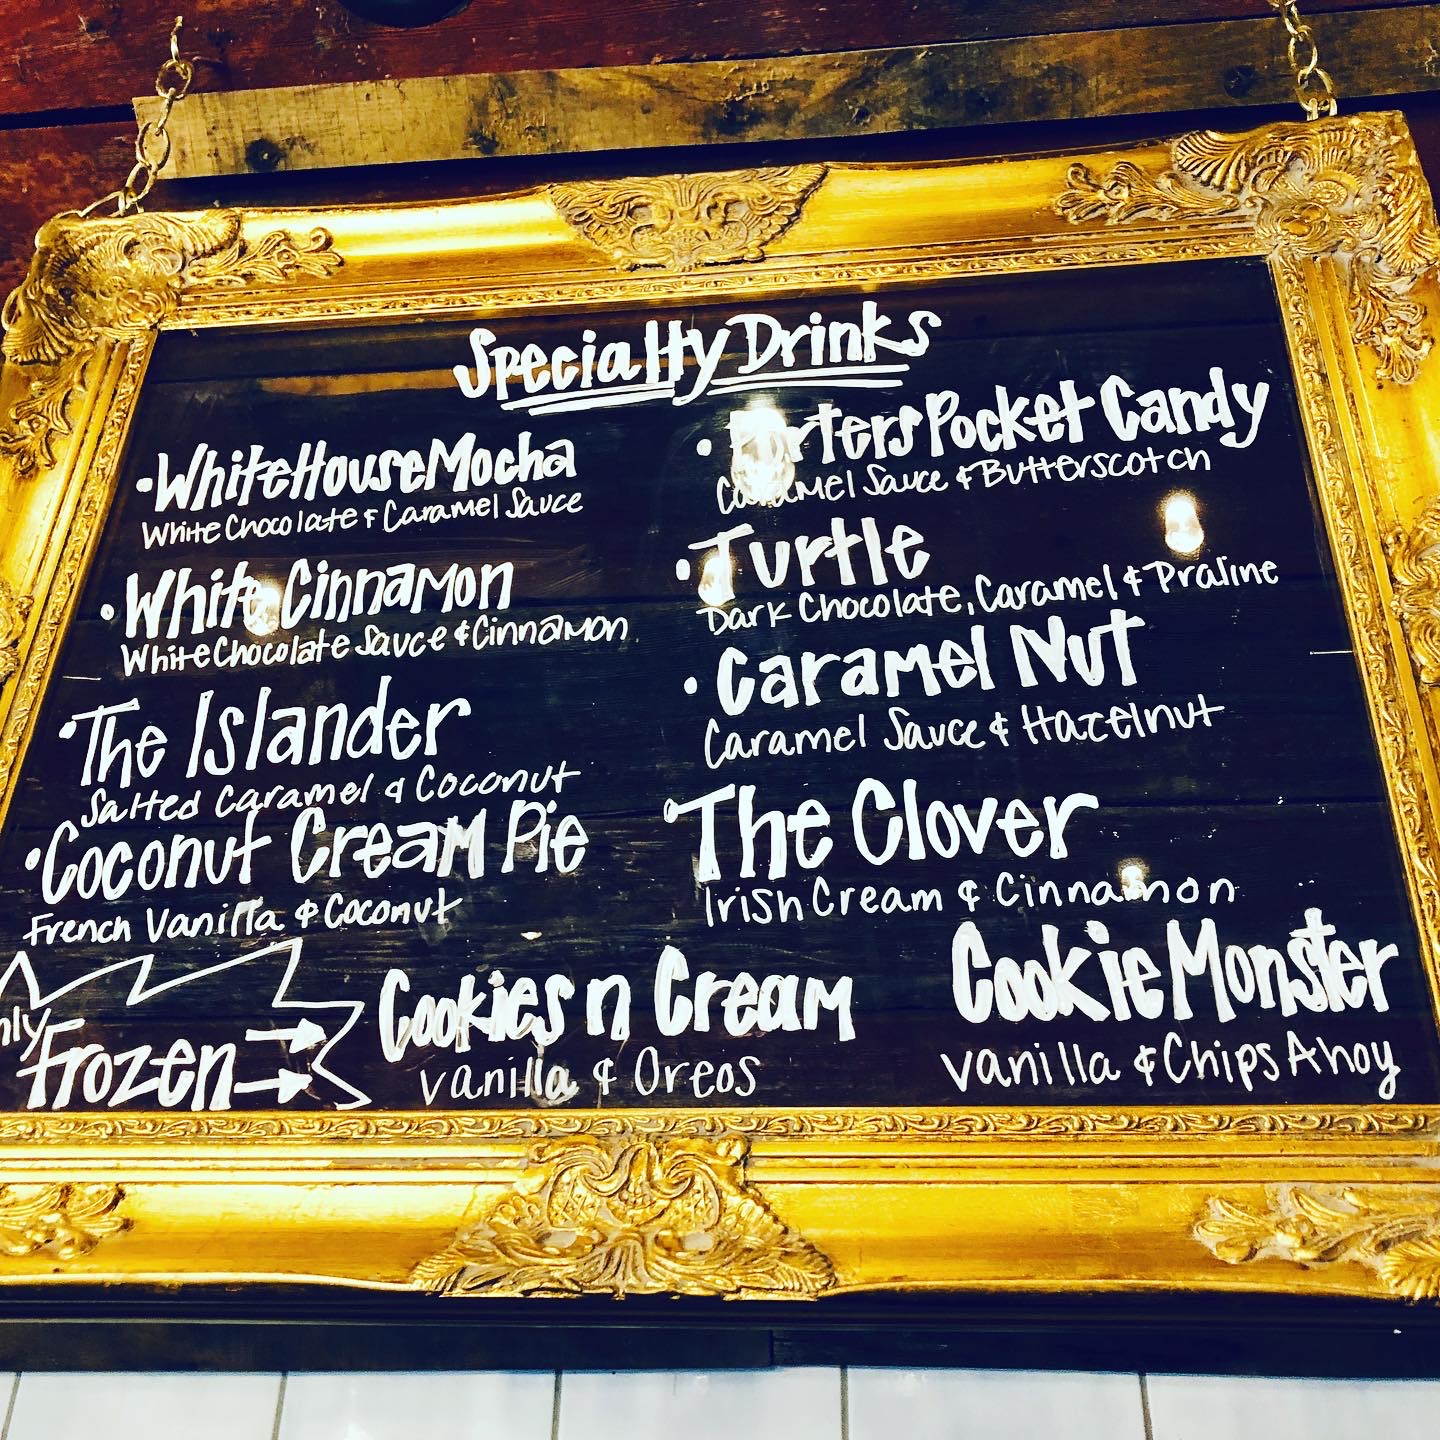 Specialty Drinks
• White House Mocha
White Chocolate & Caramel Sauce
• White Cinnamon
White Chocolate Sauce & Cinnamon
• The Islander
Salted Caramel & Coconut
• Coconut Cream Pie
French Vanilla & Coconut
• Porters Pocket Candy
Caramel Sauce & Butterscotch
• Turtle
Dark Chocolate, Caramel & Praline
• Caramel Nut
Caramel Sauce & Hazelnut
• The Clover
Irish Cream & Cinnamon
Frozen
Cookies n Cream
vanilla & Oreos
Cookie Monster
vanilla & Chips Ahoy